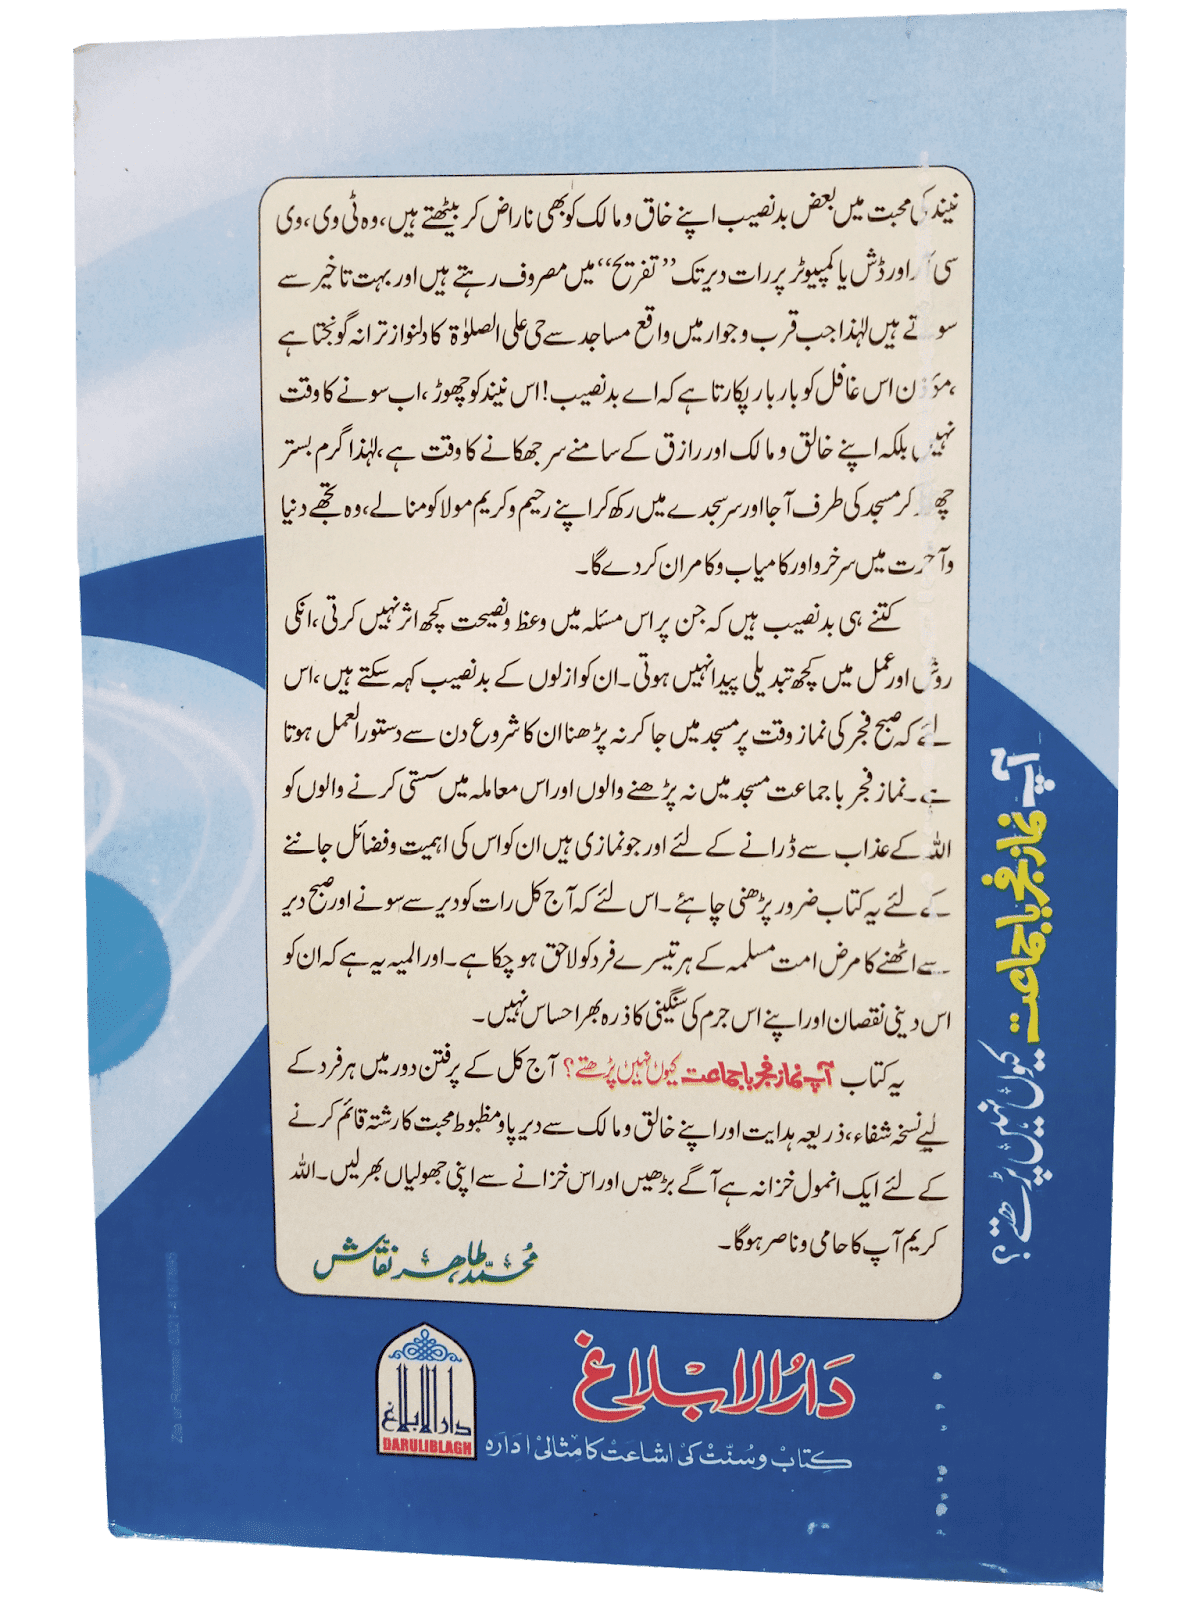 نیند کی محبت میں بعض بدنصیب اپنے خاق و مالک کو بھی ناراض کر بیٹھتے ہیں، وہ ٹی وی، وی
سی آر اور ڈش یا کمپیوٹر پر رات دیر تک ”تفریح“ میں مصروف رہتے ہیں اور بہت تاخیر سے
سوتے ہیں لہٰذا جب قرب و جوار میں واقع مساجد سے حی علی الصلوٰۃ کا دلنواز ترانہ گونجتا ہے
،مؤذن اس غافل کو بار بار پکارتا ہے کہ اے بدنصیب! اس نیند کو چھوڑ، اب سونے کا وقت
نہیں بلکہ اپنے خالق و مالک اور رازق کے سامنے سر جھکانے کا وقت ہے، لہٰذا گرم بستر
چھوڑ کر مسجد کی طرف آ جا اور سر سجدے میں رکھ کر اپنے رحیم و کریم مولا کو منا لے، وہ تجھے دنیا
و آخرت میں سرخرو اور کامیاب و کامران کر دے گا۔
کتنے ہی بدنصیب ہیں کہ جن پر اس مسئلہ میں وعظ و نصیحت کچھ اثر نہیں کرتی، انکی
روش اور عمل میں کچھ تبدیلی پیدا نہیں ہوتی۔ ان کو ازلوں کے بدنصیب کہہ سکتے ہیں، اس
لئے کہ صبح فجر کی نماز وقت پر مسجد میں جا کر نہ پڑھنا ان کا شروع دن سے دستور العمل ہوتا
ہے۔ نماز فجر با جماعت مسجد میں نہ پڑھنے والوں اور اس معاملہ میں سستی کرنے والوں کو
اللہ کے عذاب سے ڈرانے کے لئے اور جو نمازی ہیں ان کو اس کی اہمیت و فضائل جاننے
کے لئے یہ کتاب ضرور پڑھنی چاہئے۔ اس لئے کہ آج کل رات کو دیر سے سونے اور صبح دیر
سے اٹھنے کا مرض امت مسلمہ کے ہر تیسرے فرد کو لاحق ہو چکا ہے۔ اور المیہ یہ ہے کہ ان کو
اس دینی نقصان اور اپنے اس جرم کی سنگینی کا ذرہ بھر احساس نہیں۔
یہ کتاب آپ نماز فجر با جماعت کیوں نہیں پڑھتے؟ آج کل کے پرفتن دور میں ہر فرد کے
لیے نسخہ شفاء، ذریعہ ہدایت اور اپنے خالق و مالک سے دیر پا و مظبوط محبت کا رشتہ قائم کرنے
کے لئے ایک انمول خزانہ ہے آگے بڑھیں اور اس خزانے سے اپنی جھولیاں بھر لیں۔ اللہ
کریم آپ کا حامی و ناصر ہوگا۔
محمد طاہر نقاش
آپ نماز فجر با جماعت کیوں نہیں پڑھتے؟
دَارُالابلاغ
کتاب و سنت کی اشاعت کا مثالی ادارہ
دارالابلاغ
DARULIBLAGH